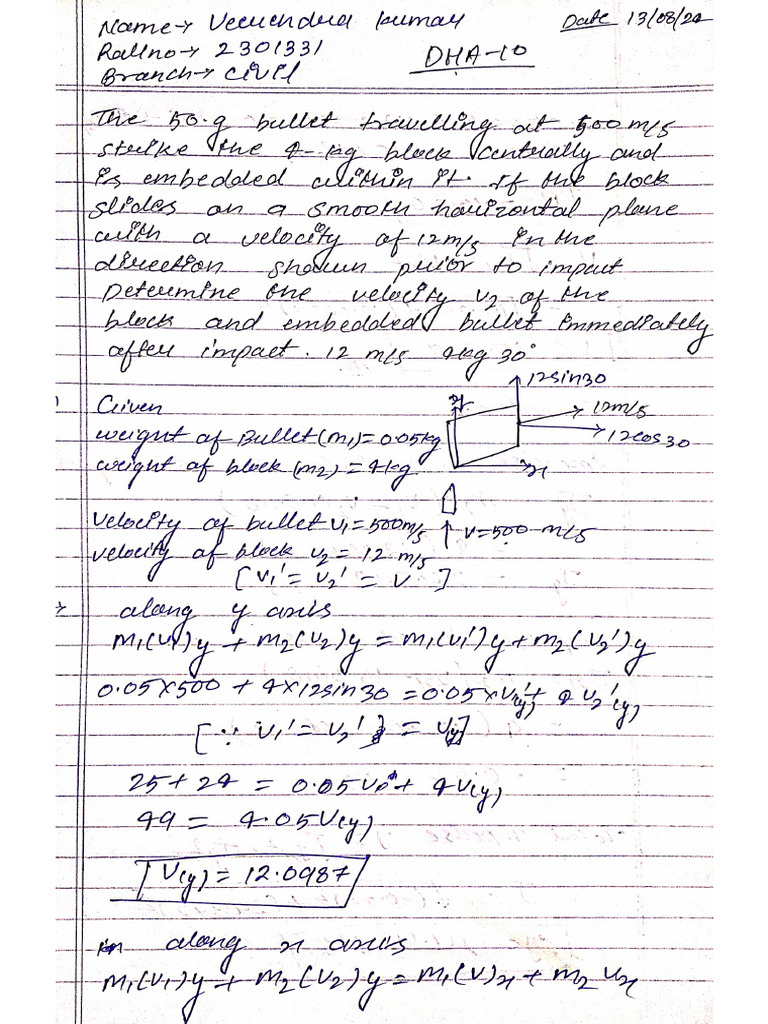 Name→ Veerendra kumar Date 13/08/24
Rollno→ 2301331 DHA-10
Branch→ Civil
The 50.g bullet travelling at 500 m/s
strike the 4-kg block centrally and
is embedded within it. If the block
slides on a smooth horizontal plane
with a velocity of 12 m/s in the
direction shown prior to impact
Determine the velocity v2 of the
block and embedded bullet immediately
after impact. 12 m/s 4kg 30°
12sin30
Given
y
12m/s
weight of Bullet(m1)=0.05kg
12cos30
weight of block (m2)=4kg
x
Velocity of bullet v1=500m/s
v=500 m/s
velocity of block v2 = 12 m/s
[v1' = v2' = V]
→ along y axis
m1(v1)y + m2(v2)y = m1(v1')y + m2(v2')y
0.05×500 + 4×12sin30 = 0.05×v1'(y) + 4 v2'(y)
[∵ v1' = v2' } = Vy]
25+24 = 0.05v + 4V(y)
49 = 4.05V(y)
V(y) = 12.0987
along x axis
m1(v1)y + m2(v2)y = m1(v)x + m2 vx